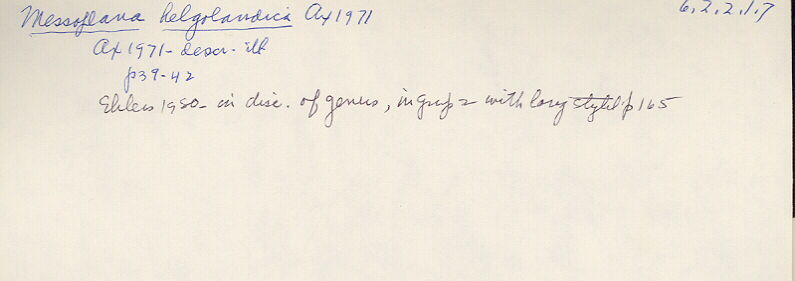 Messoplana helgolandica Ax 1971 6.2.2.1.7
Ax 1971 - descr - ill
p39-42
Ehlers 1980 - in disc. of genus, in grup 2 with long stylet p 165